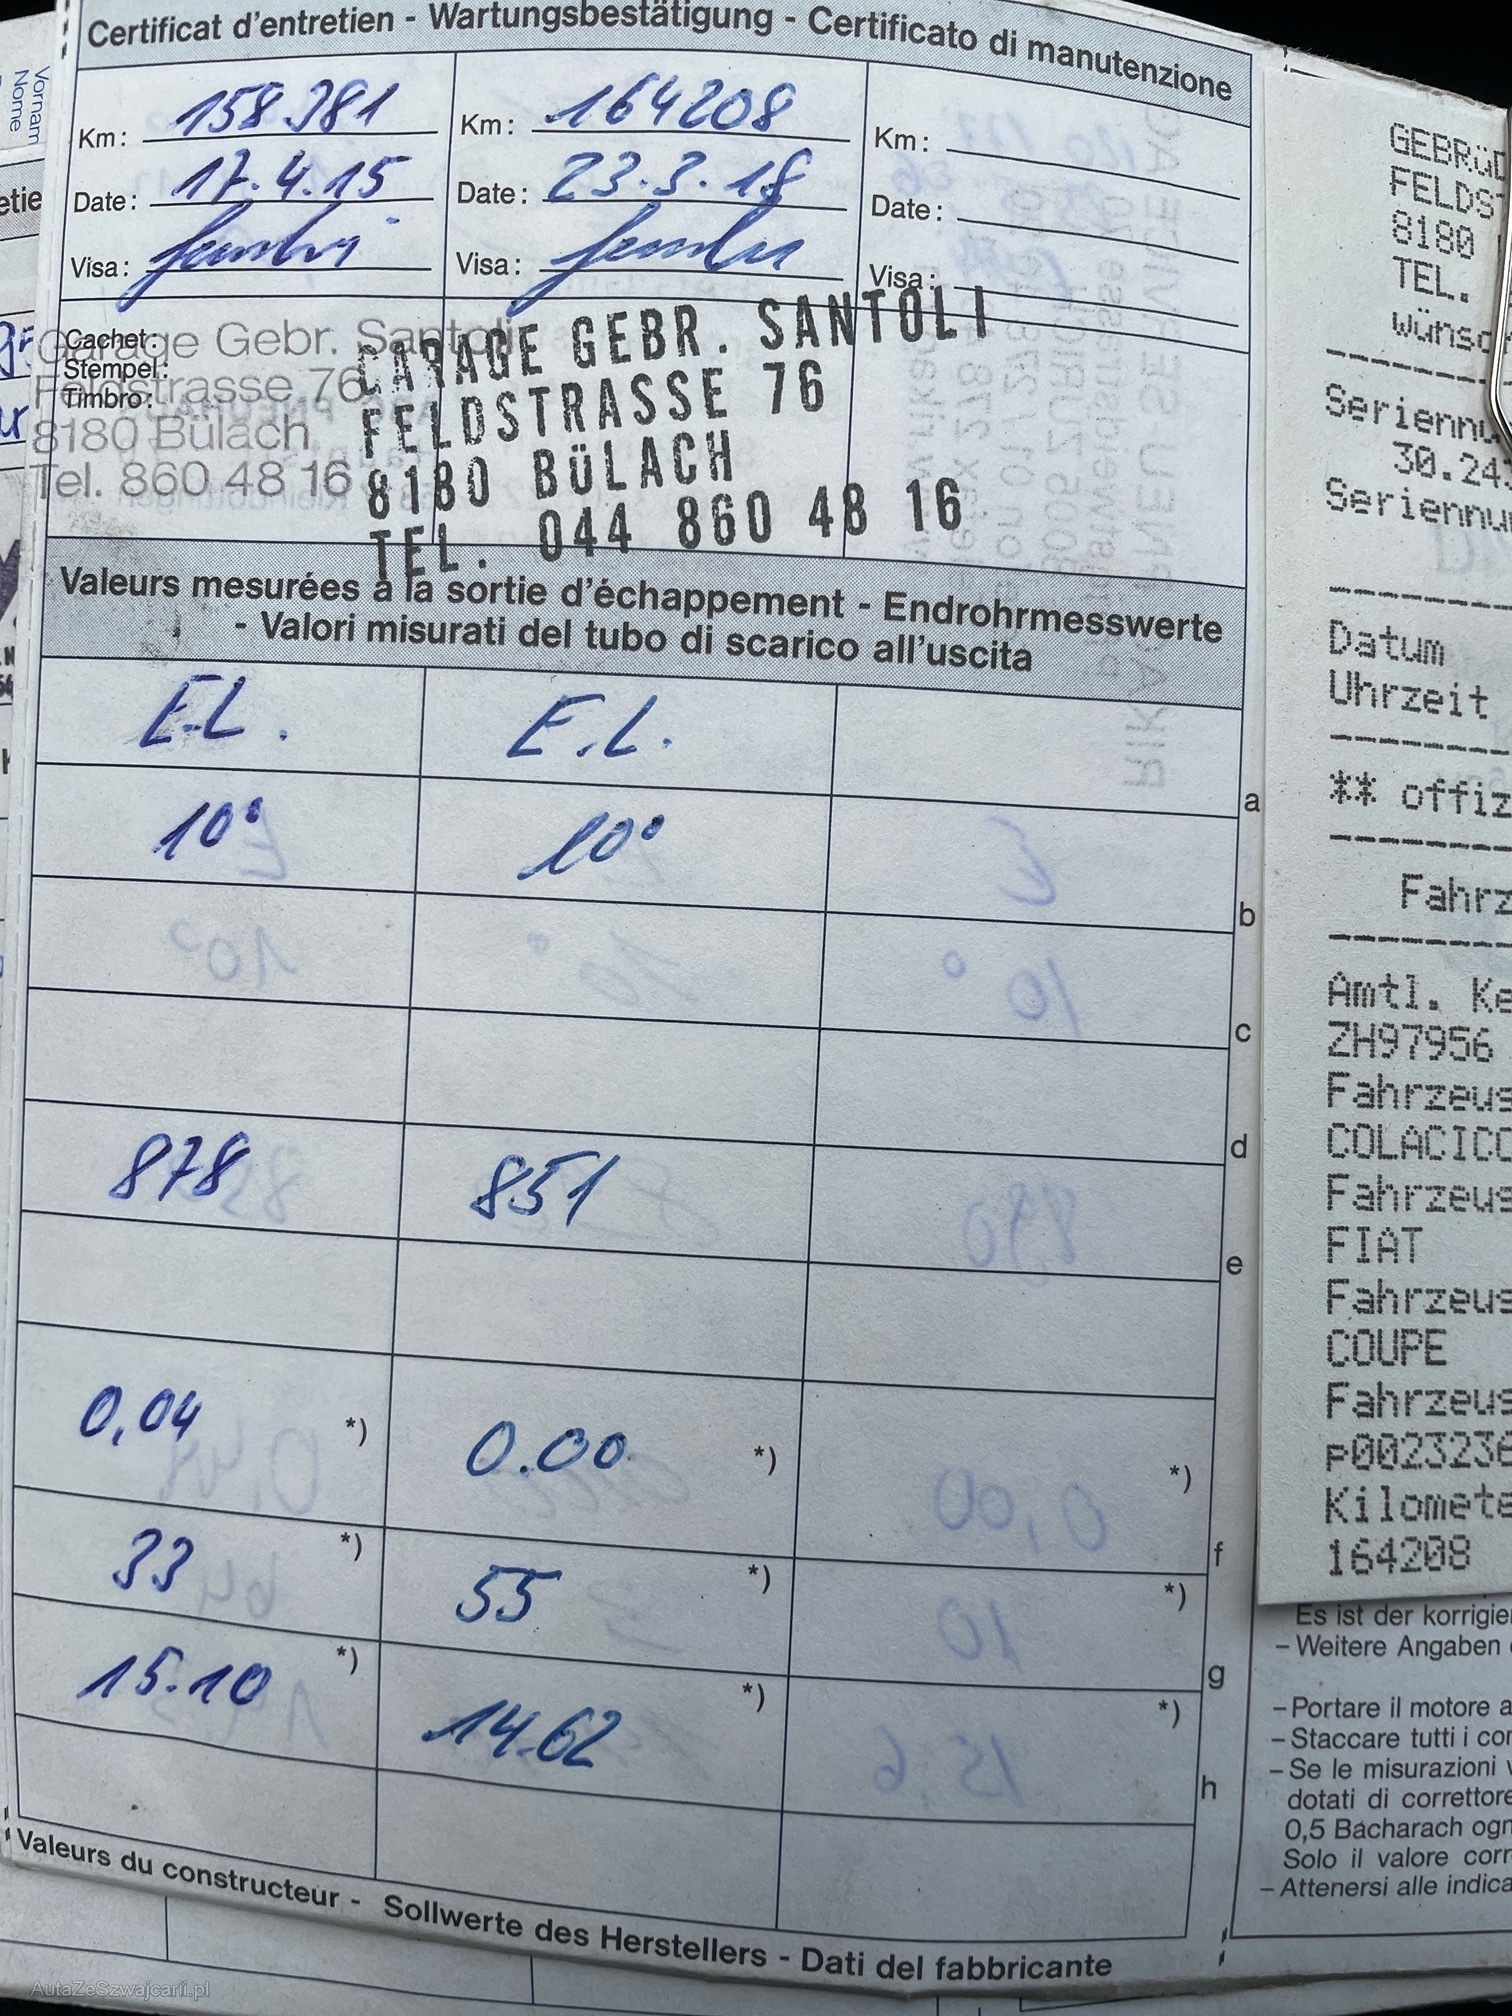 Certificat d'entretien - Wartungsbestätigung - Certificato di manutenzione
Vornam
Nome
etie
Km: 158.381
Date: 17.4.15
Visa:
Km: 164208
Date: 23.3.18
Visa:
Km:
Date:
Visa:
Cachet:
Stempel:
Timbro:
Garage Gebr. Santoli
Feldstrasse 76
8180 Bülach
Tel. 860 48 16
GARAGE GEBR. SANTOLI
FELDSTRASSE 76
8180 BÜLACH
TEL. 044 860 48 16
Valeurs mesurées à la sortie d'échappement - Endrohrmesswerte
- Valori misurati del tubo di scarico all'uscita
E.L. E.L.
a
10° 10°
b
c
d
878 851
e
0,04 *) 0.00 *) *)
f
33 *) 55 *) *)
g
15.10 *) 14.62 *) *)
h
Valeurs du constructeur - Sollwerte des Herstellers - Dati del fabbricante
GEBRÜD
FELDST
8180
TEL.
wünsc
Seriennu
30.24
Seriennu
Datum
Uhrzeit
** offiz
Fahrz
Amtl. Ke
ZH97956
Fahrzeus
COLACICC
Fahrzeus
FIAT
Fahrzeus
COUPE
Fahrzeus
p0023236
Kilomete
164208
Es ist der korrigie
– Weitere Angaben
– Portare il motore a
– Staccare tutti i co
– Se le misurazioni v
dotati di correttore
0,5 Bacharach ogn
Solo il valore corr
– Attenersi alle indica
AutaZeSzwajcarii.pl